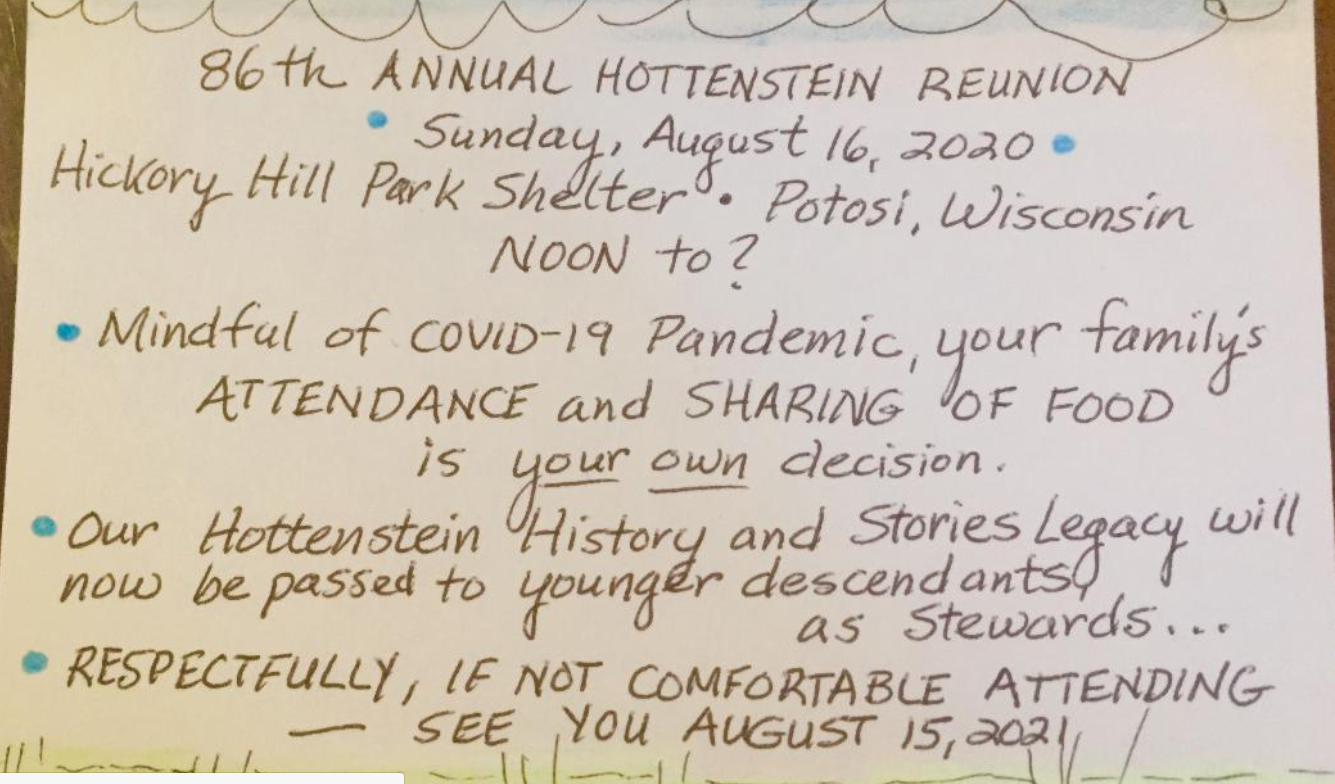 86th ANNUAL HOTTENSTEIN REUNION
• Sunday, August 16, 2020 •
Hickory Hill Park Shelter • Potosi, Wisconsin
NOON to ?
• Mindful of COVID-19 Pandemic, your family's
ATTENDANCE and SHARING OF FOOD
is your own decision.
• Our Hottenstein History and Stories Legacy will
now be passed to younger descendants,
as Stewards...
• RESPECTFULLY, IF NOT COMFORTABLE ATTENDING
— SEE YOU AUGUST 15, 2021